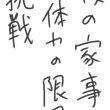 の家事
体力の限界
挑戦